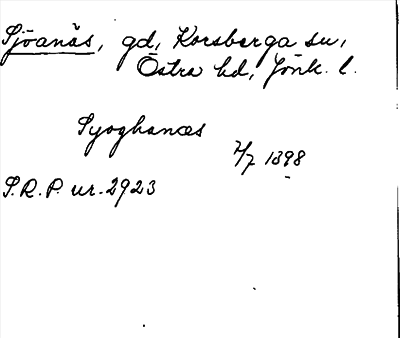 Sjöanäs, gd, Korsberga sn,
Östra hd, Jönk. l.
Syoghanæs
2/7 1398
S.R.P. nr. 2923